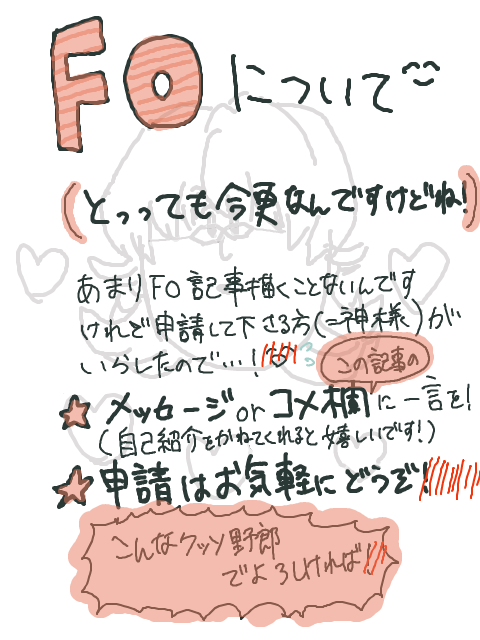 FOについて
(とっっても今更なんですけどね!)
あまりFO記事描くことないんです
けれど申請して下さる方(=神様)が
いらしたので…!
この記事の
メッセージorコメ欄に一言を!
(自己紹介をかねてくれると嬉しいです!)
申請はお気軽にどうぞ!
こんなクッソ野郎
でよろしければ!